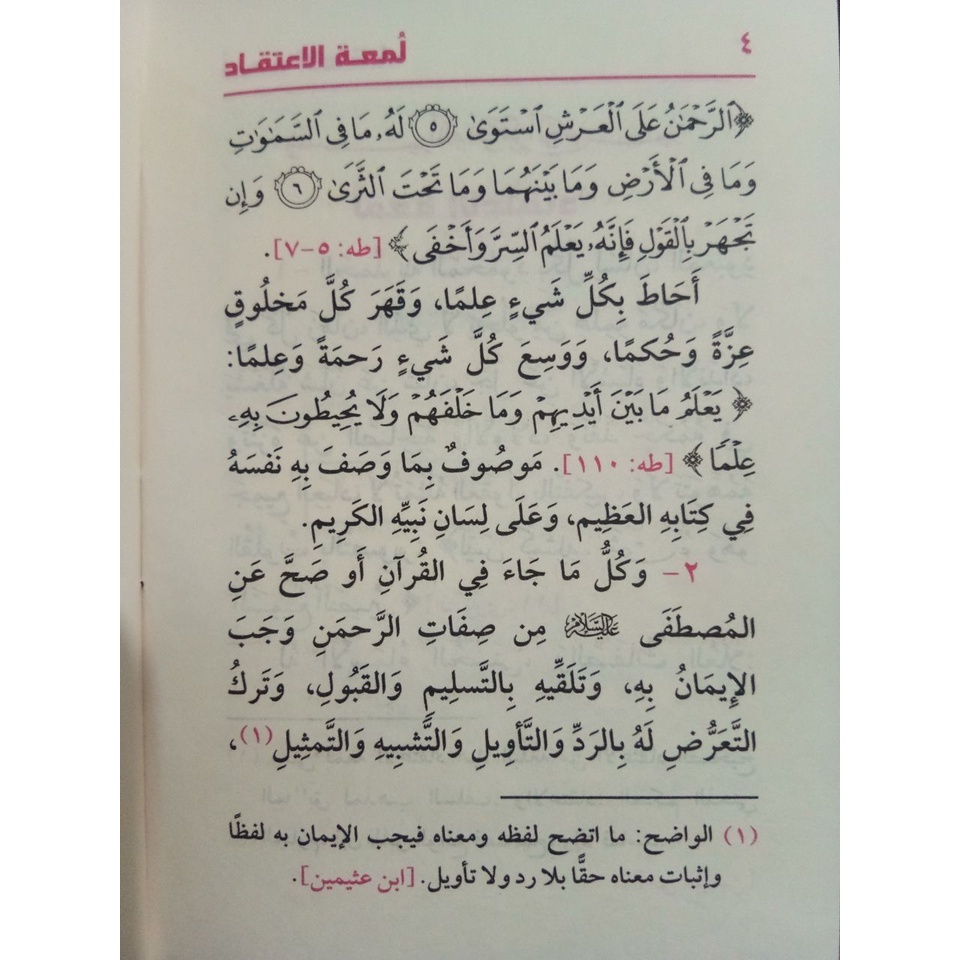 ٤
لُمعة الاعتقاد
﴿ٱلرَّحْمَٰنُ عَلَى ٱلْعَرْشِ ٱسْتَوَىٰ ٥ لَهُۥ مَا فِي ٱلسَّمَٰوَٰتِ
وَمَا فِي ٱلْأَرْضِ وَمَا بَيْنَهُمَا وَمَا تَحْتَ ٱلثَّرَىٰ ٦ وَإِن
تَجْهَرْ بِٱلْقَوْلِ فَإِنَّهُۥ يَعْلَمُ ٱلسِّرَّ وَأَخْفَى﴾ [طه: ٥-٧].
أَحَاطَ بِكُلِّ شَيءٍ عِلمًا، وَقَهَرَ كُلَّ مَخلُوقٍ
عِزَّةً وَحُكمًا، وَوَسِعَ كُلَّ شَيءٍ رَحمَةً وَعِلمًا:
﴿يَعْلَمُ مَا بَيْنَ أَيْدِيهِمْ وَمَا خَلْفَهُمْ وَلَا يُحِيطُونَ بِهِۦ
عِلْمًا﴾ [طه: ١١٠]. مَوصُوفٌ بِمَا وَصَفَ بِهِ نَفسَهُ
فِي كِتَابِهِ العَظِيمِ، وَعَلَى لِسَانِ نَبِيِّهِ الكَرِيمِ.
٢- وَكُلُّ مَا جَاءَ فِي القُرآنِ أَو صَحَّ عَنِ
المُصطَفَى عَلَيْهِ السَّلَامُ مِن صِفَاتِ الرَّحمَنِ وَجَبَ
الإِيمَانُ بِهِ، وَتَلَقِّيهِ بِالتَّسلِيمِ وَالقَبُولِ، وَتَركُ
التَّعَرُّضِ لَهُ بِالرَدِّ وَالتَّأوِيلِ وَالتَّشبِيهِ وَالتَّمثِيلِ(١)،
(١) الواضح: ما اتضح لفظه ومعناه فيجب الإيمان به لفظًا
وإثبات معناه حقًّا بلا رد ولا تأويل. [ابن عثيمين].